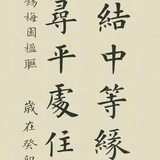 結中等緣
尋平處住
錫梅園楹聯 歲在癸卯